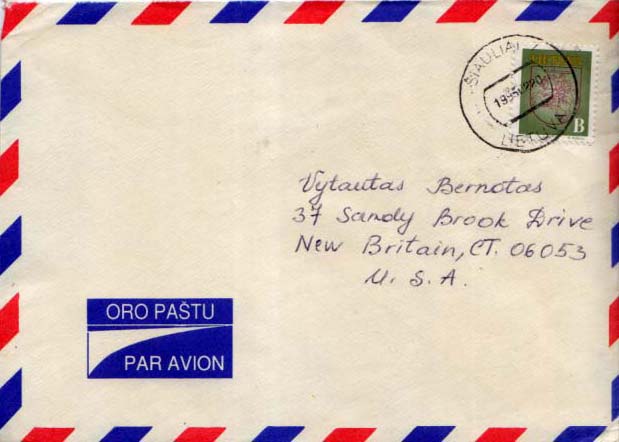 ŠIAULIAI
LIETUVA
B
Vytautas Bernotas
37 Sandy Brook Drive
New Britain, CT. 06053
U. S. A.
ORO PAŠTU
PAR AVION